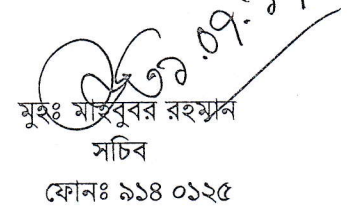 মুহঃ মাহবুবর রহমান
সচিব
ফোনঃ ৯১৪ ০১২৫